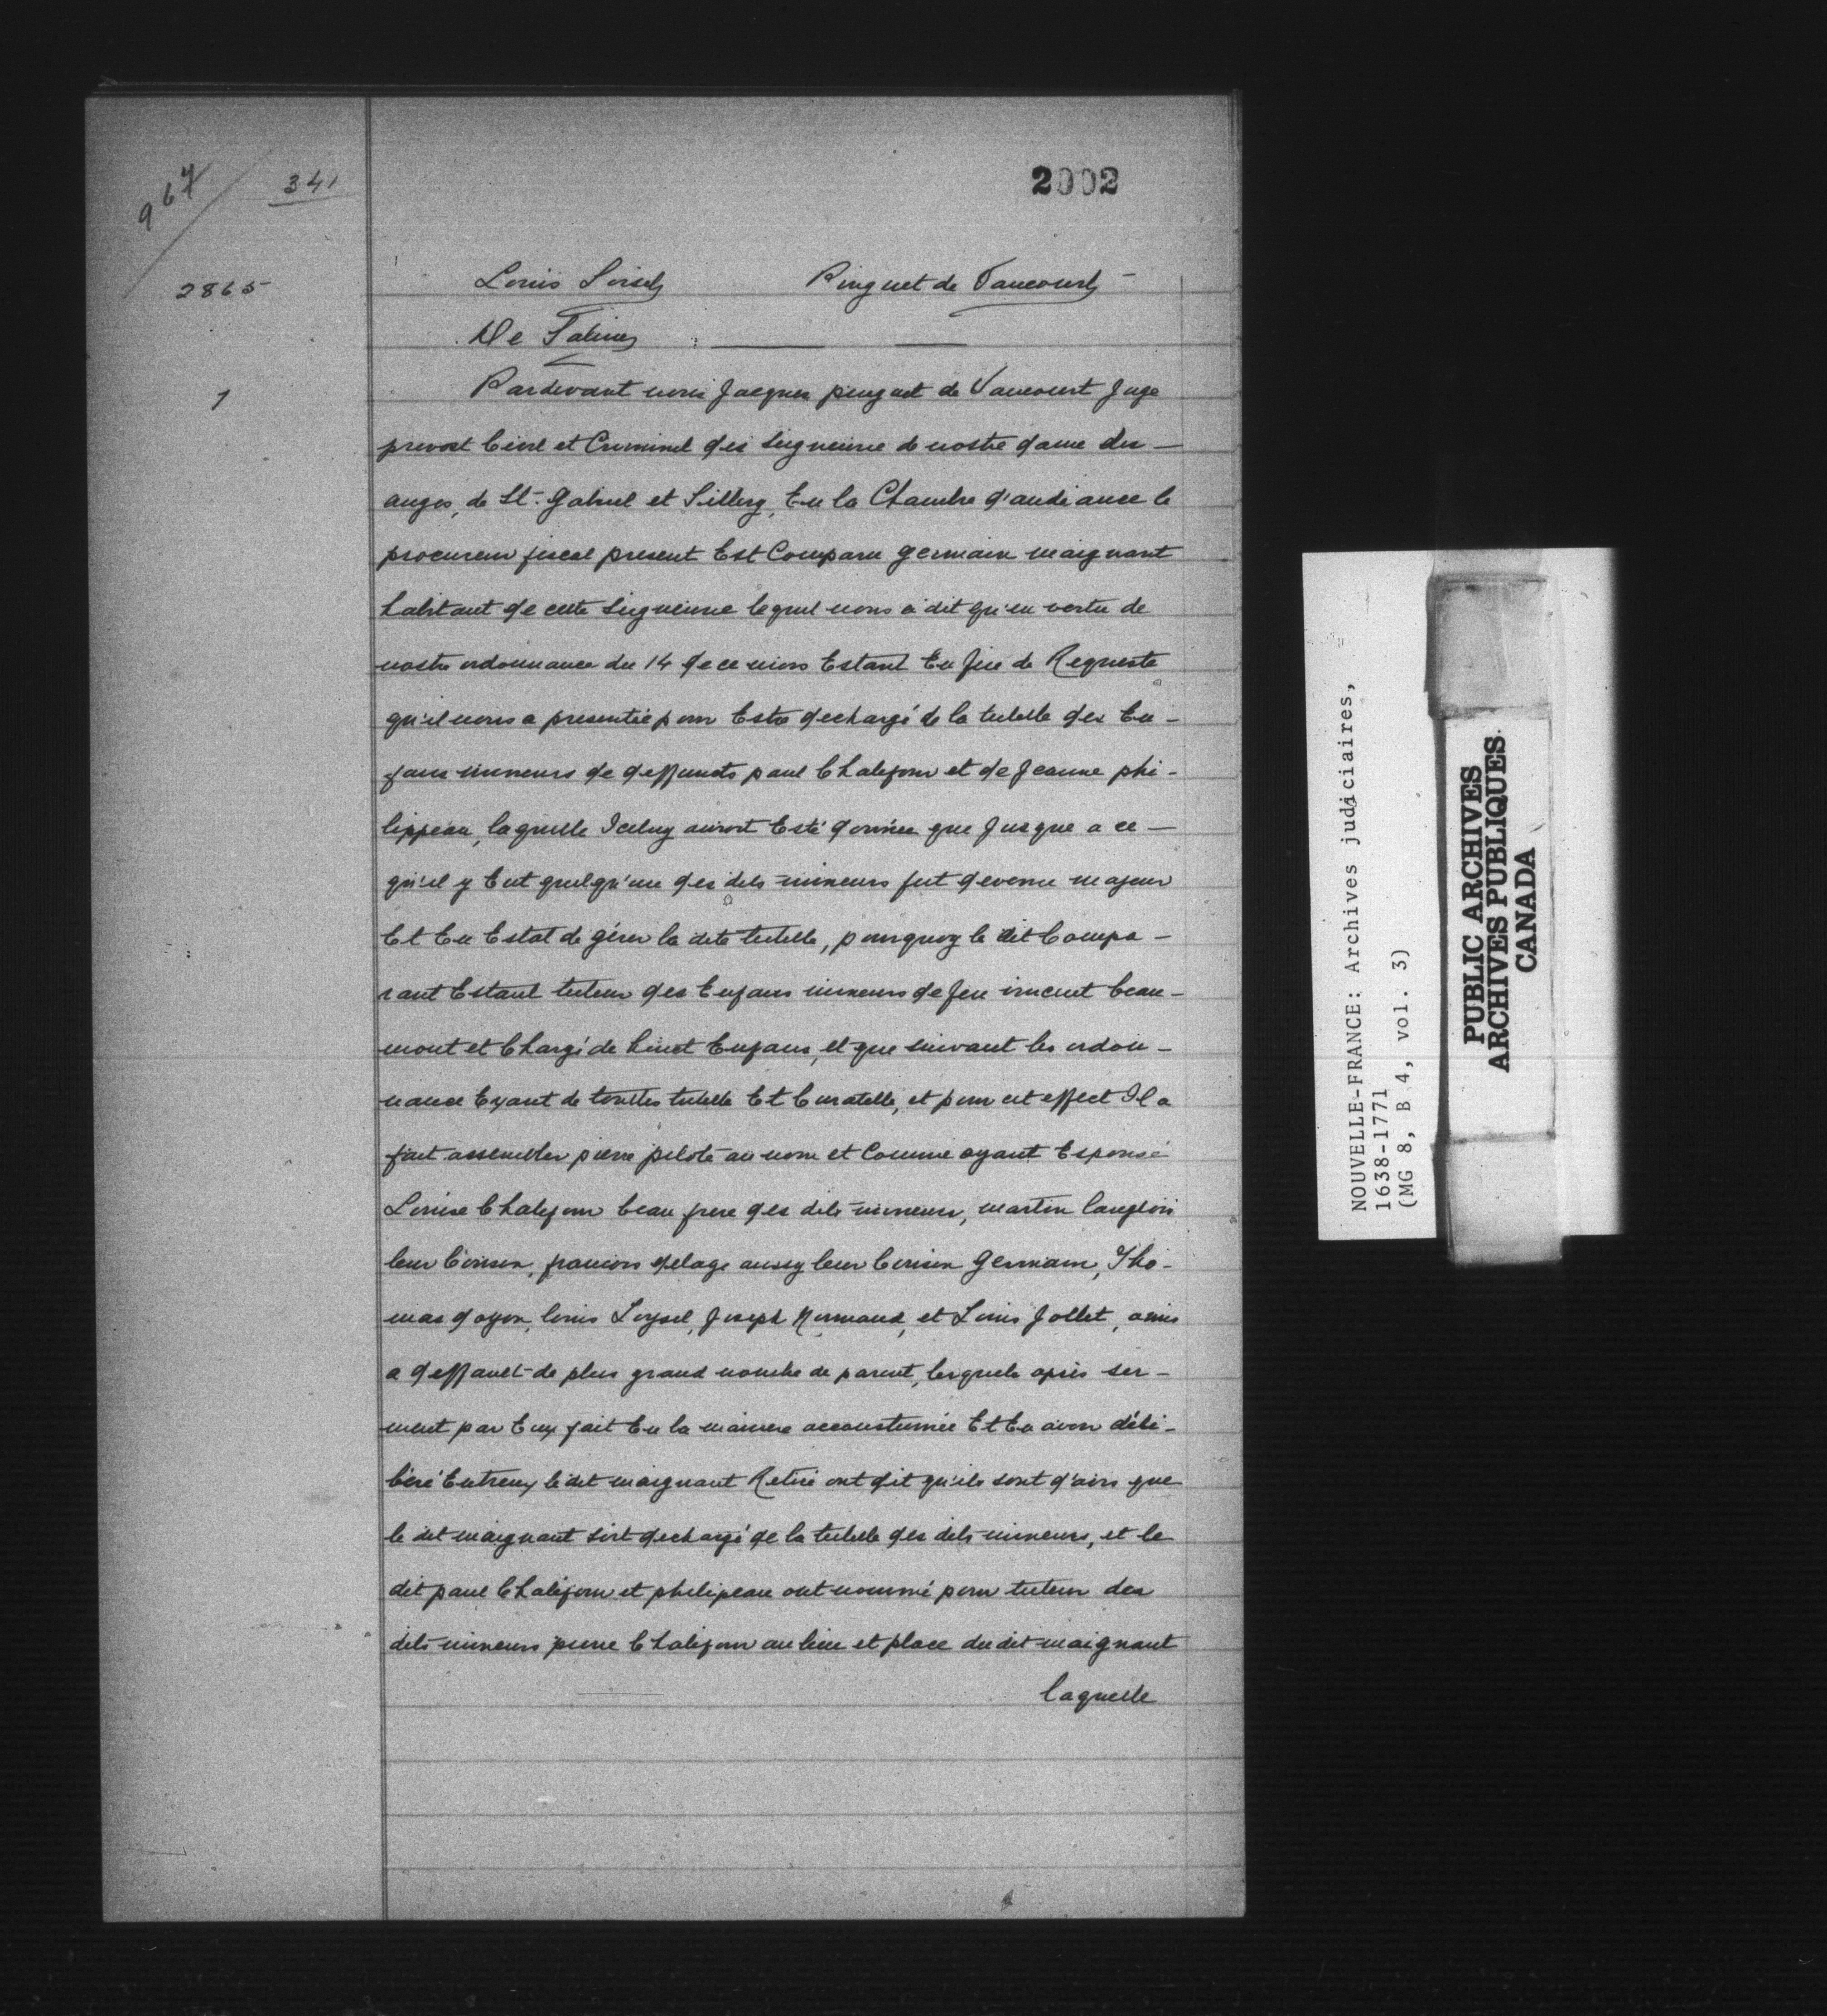 967
341
2002
2865
Louis Loisel Pinguet de Vaucourt
De Salines
1
Pardevant nous Jacques pinguet de Vaucourt Juge
prevost Civil et Criminel des Seigneurie de nostre dame des
anges, de St. Gabriel et Sillery, En la Chambre d'audiance le
procureur fiscal present Est Comparu germain maignant
habitant de cette Seigneurie lequel nous a dit qu'en vertu de
nostre ordonnance du 14 de ce mois Estant En fin de Requeste
qu'il nous a presentée pour Estre dechargé de la tutelle des En-
fans mineurs de deffunts paul Chalifour et de Jeanne phi-
lippeau, laquelle Iceluy auroit Esté donnée que Jusque a ce
qu'il y Eut quelqu'un des dits mineurs fut devenu majeur
Et En Estat de gérer la dite tutelle, pourquoy le dit Compa-
rant Estant tuteur des Enfans mineurs de feu vincent beau-
mont et Chargé de huict Enfans, et que suivant les ordon-
nance Exant de touttes tutelle Et Curatelle, et pour cet effect Il a
fait assembler pierre pilote au nom et Comme ayant Espousé
Louise Chalifour beau frere des dits mineurs, martin langlois
leur Cousin, francois delage aussy leur Cousin germain, Tho-
mas doyon, louis Loysel, Joseph Normand, et Louis Jollet, amis
a deffault de plus grand nombre de parent, lesquels après ser-
ment par Eux fait En la maniere accoustumée Et En avoir déli-
béré Entreux le dit maignant Retiré ont dit qu'ils sont d'avis que
le dit maignant soit dechargé de la tutelle des dits mineurs, et le
dit paul Chalifour et philipeau ont nommé pour tuteur des
dits mineurs pierre Chalifour au lieu et place du dit maignant
laquelle
NOUVELLE-FRANCE: Archives judiciaires,
1638-1771
(MG 8, B 4, vol. 3)
PUBLIC ARCHIVES
ARCHIVES PUBLIQUES
CANADA